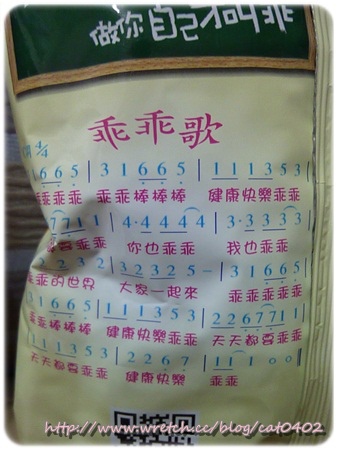 做你自己才叫乖
乖乖歌
1 6 6 5 | 3 1 6 6 5 | 1 1 1 3 5 3 |
乖乖乖 乖乖棒棒棒 健康快樂乖乖
7 7 1 1 | 4 · 4 4 4 4 | 3 · 3 3 3 3
都要乖乖 你也乖乖 我也乖乖
2 2 3 2 | 3 2 3 2 5 – | 3 1 6 6 5 |
乖乖的世界 大家一起來 乖乖乖乖乖
3 1 6 6 5 | 1 1 1 3 5 3 | 2 2 6 7 7 1 1 |
乖乖棒棒棒 健康快樂乖乖 天天都要乖乖
1 1 1 3 5 3 | 2 2 6 7 | 1 1 1 o o ‖
天天都要乖乖 健康快樂 乖乖
http://www.wretch.cc/blog/cat0402